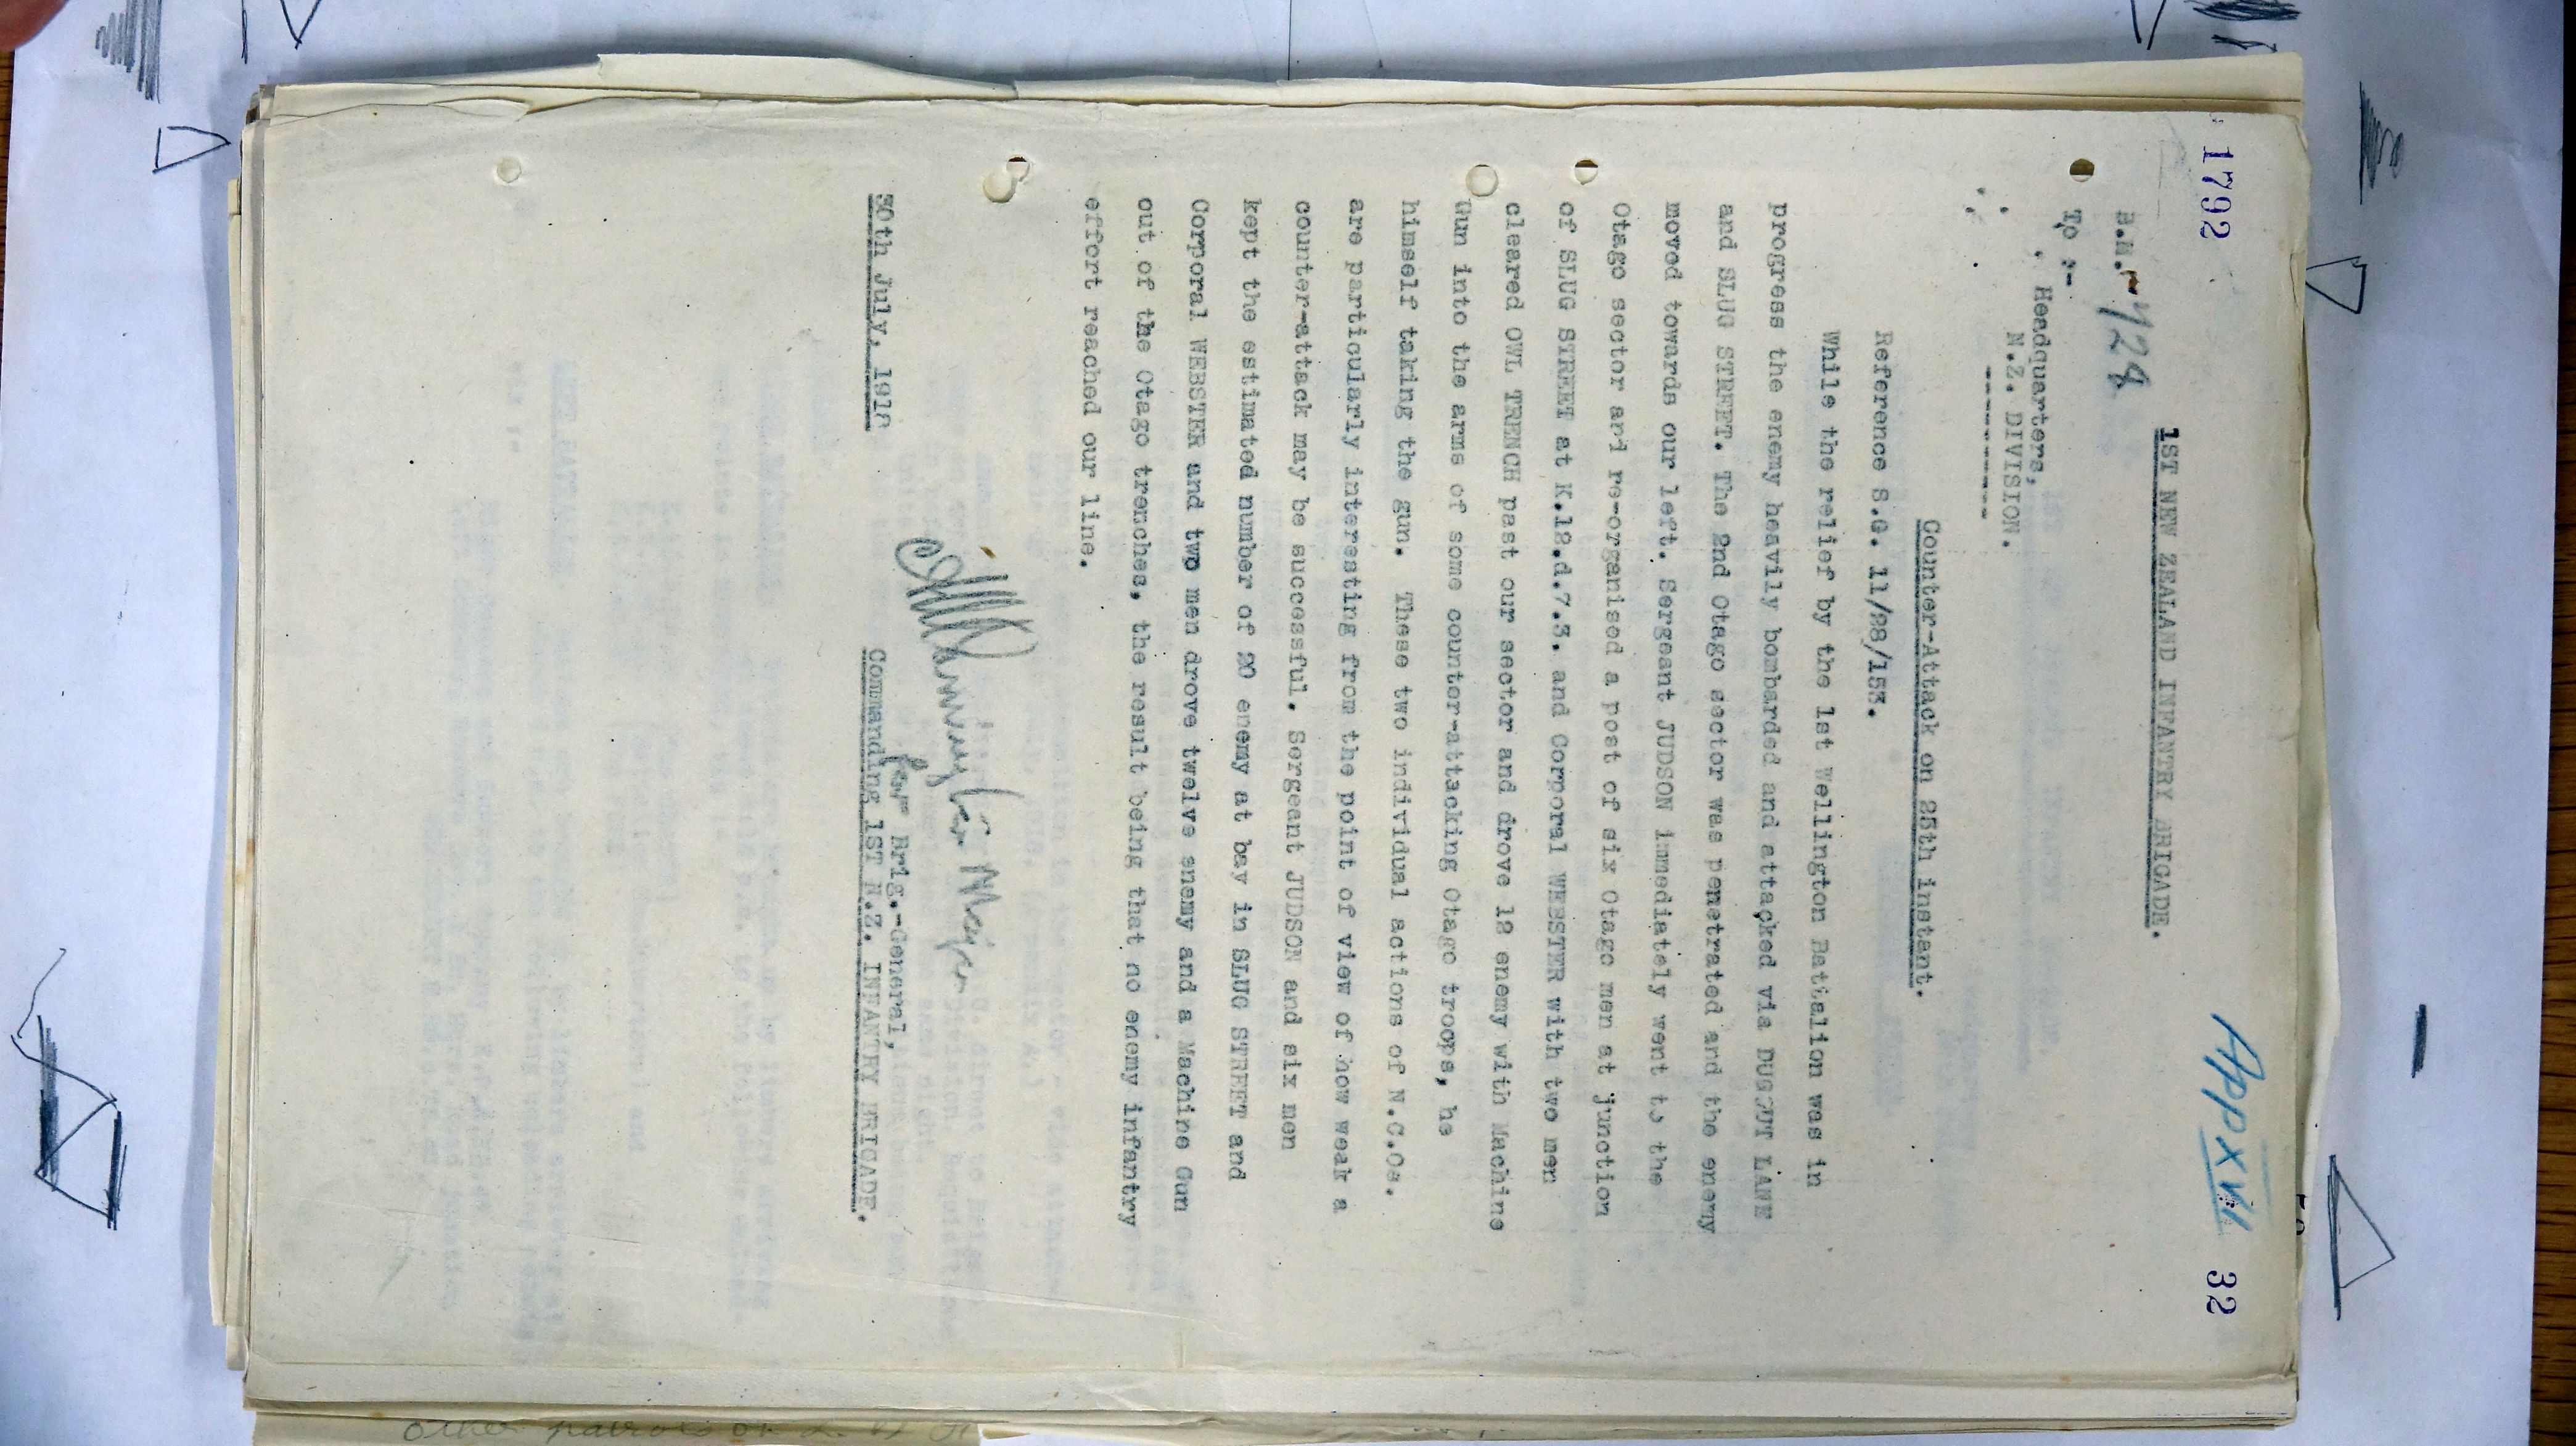 1792
App XVII 32
1ST NEW ZEALAND INFANTRY BRIGADE.
B.M. 728
To :-
Headquarters,
N.Z. DIVISION.
-------------
Counter-Attack on 25th instant.
Reference S.G. 11/28/153.
While the relief by the 1st Wellington Battalion was in
progress the enemy heavily bombarded and attacked via DUGOUT LANE
and SLUG STREET. The 2nd Otago sector was penetrated and the enemy
moved towards our left. Sergeant JUDSON immediately went to the
Otago sector and re-organised a post of six Otago men at junction
of SLUG STREET at K.12.d.7.3. and Corporal WEBSTER with two men
cleared OWL TRENCH past our sector and drove 12 enemy with Machine
Gun into the arms of some counter-attacking Otago troops, he
himself taking the gun. These two individual actions of N.C.Os.
are particularly interesting from the point of view of how weak a
counter-attack may be successful. Sergeant JUDSON and six men
kept the estimated number of 20 enemy at bay in SLUG STREET and
Corporal WEBSTER and two men drove twelve enemy and a Machine Gun
out of the Otago trenches, the result being that no enemy infantry
effort reached our line.
Major
for Brig.-General,
30th July, 1918
Commanding 1ST N.Z. INFANTRY BRIGADE.
other patrols on